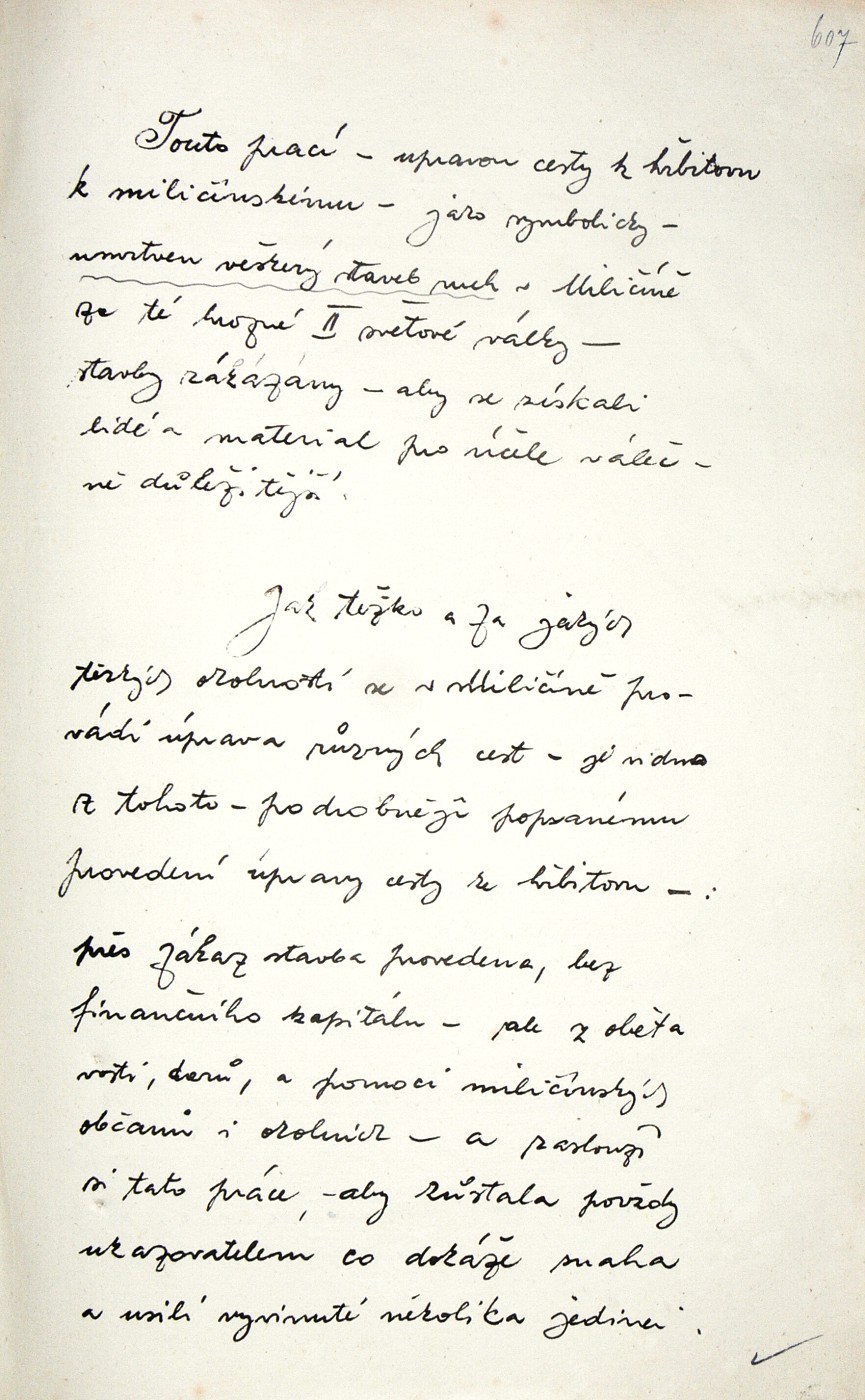 607
Touto prací – upravou cesty k hřbitovu
k miličínskému – jako symbolicky –
umrtven veškerý staveb ruch v Miličíně
za té hrozné II světové války —
stavby zakázány – aby se získali
lidé a material pro účele váleč –
ně důležitější.
Jak těžko a za jakých
těžkých okolností se v Miličíně pro–
vádí úprava různých cest – je vidno
z tohoto – podrobněji popsanému
provedení úpravy cesty ke hřbitovu – :
přes zákaz stavba provedena, bez
finančního kapitálu – ale z oběta
vosti, darů, a pomoci miličínských
občanů i okolních – a zaslouží
si tato práce, – aby zůstala povždy
ukazovatelem co dokáže snaha
a usilí vyvinuté několika jedinci.